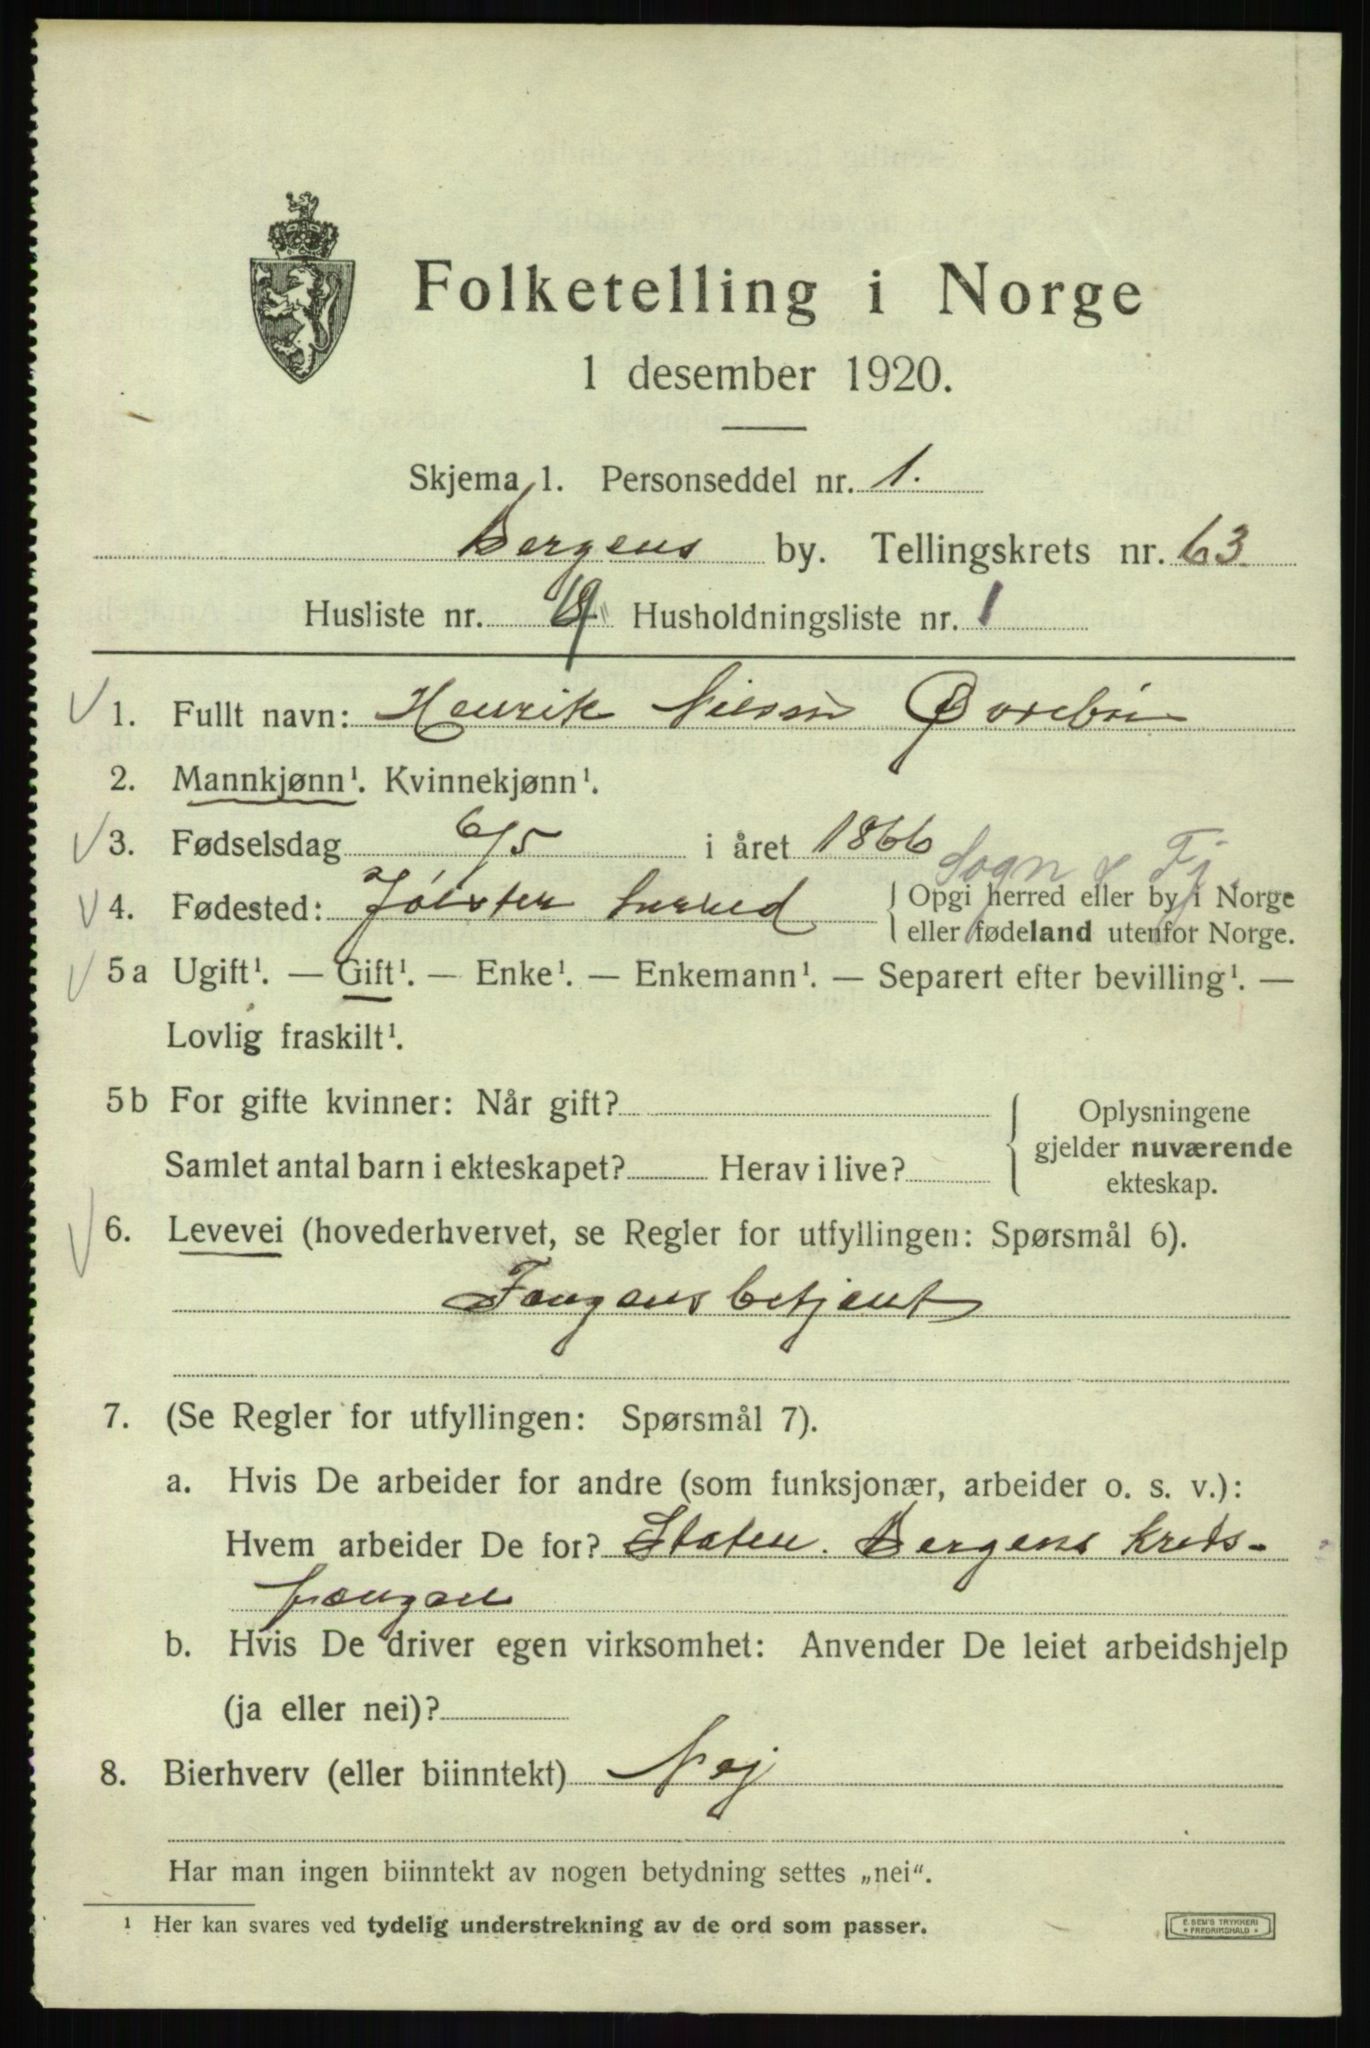 Folketelling i Norge
1 desember 1920.
Skjema 1. Personseddel nr. 1.
Bergens by. Tellingskrets nr. 63.
Husliste nr. 9 Husholdningsliste nr. 1
1. Fullt navn: Henrik Nilsen
2. Mannkjønn¹. Kvinnekjønn¹.
3. Fødselsdag 6/5 i året 1866
Sogn & Fj.
4. Fødested: Jölster herred { Opgi herred eller by i Norge
eller fødeland utenfor Norge.
5a Ugift¹. — Gift¹. — Enke¹. — Enkemann¹. — Separert efter bevilling¹. —
Lovlig fraskilt¹.
5b For gifte kvinner: Når gift? Oplysningene
gjelder nuværende
Samlet antal barn i ekteskapet? Herav i live?
ekteskap.
6. Levevei (hovederhvervet, se Regler for utfyllingen: Spørsmål 6).
Fængensbetjent
7. (Se Regler for utfyllingen: Spørsmål 7).
a. Hvis De arbeider for andre (som funksjonær, arbeider o. s. v.):
Hvem arbeider De for? Staten. Bergens kreds-
fængsel
b. Hvis De driver egen virksomhet: Anvender De leiet arbeidshjelp
(ja eller nei)?
8. Bierhverv (eller biinntekt) Nej
Har man ingen biinntekt av nogen betydning settes „nei“.
¹ Her kan svares ved tydelig understrekning av de ord som passer.
E. SEM'S TRYKKERI
* FREDRIKSHALD *